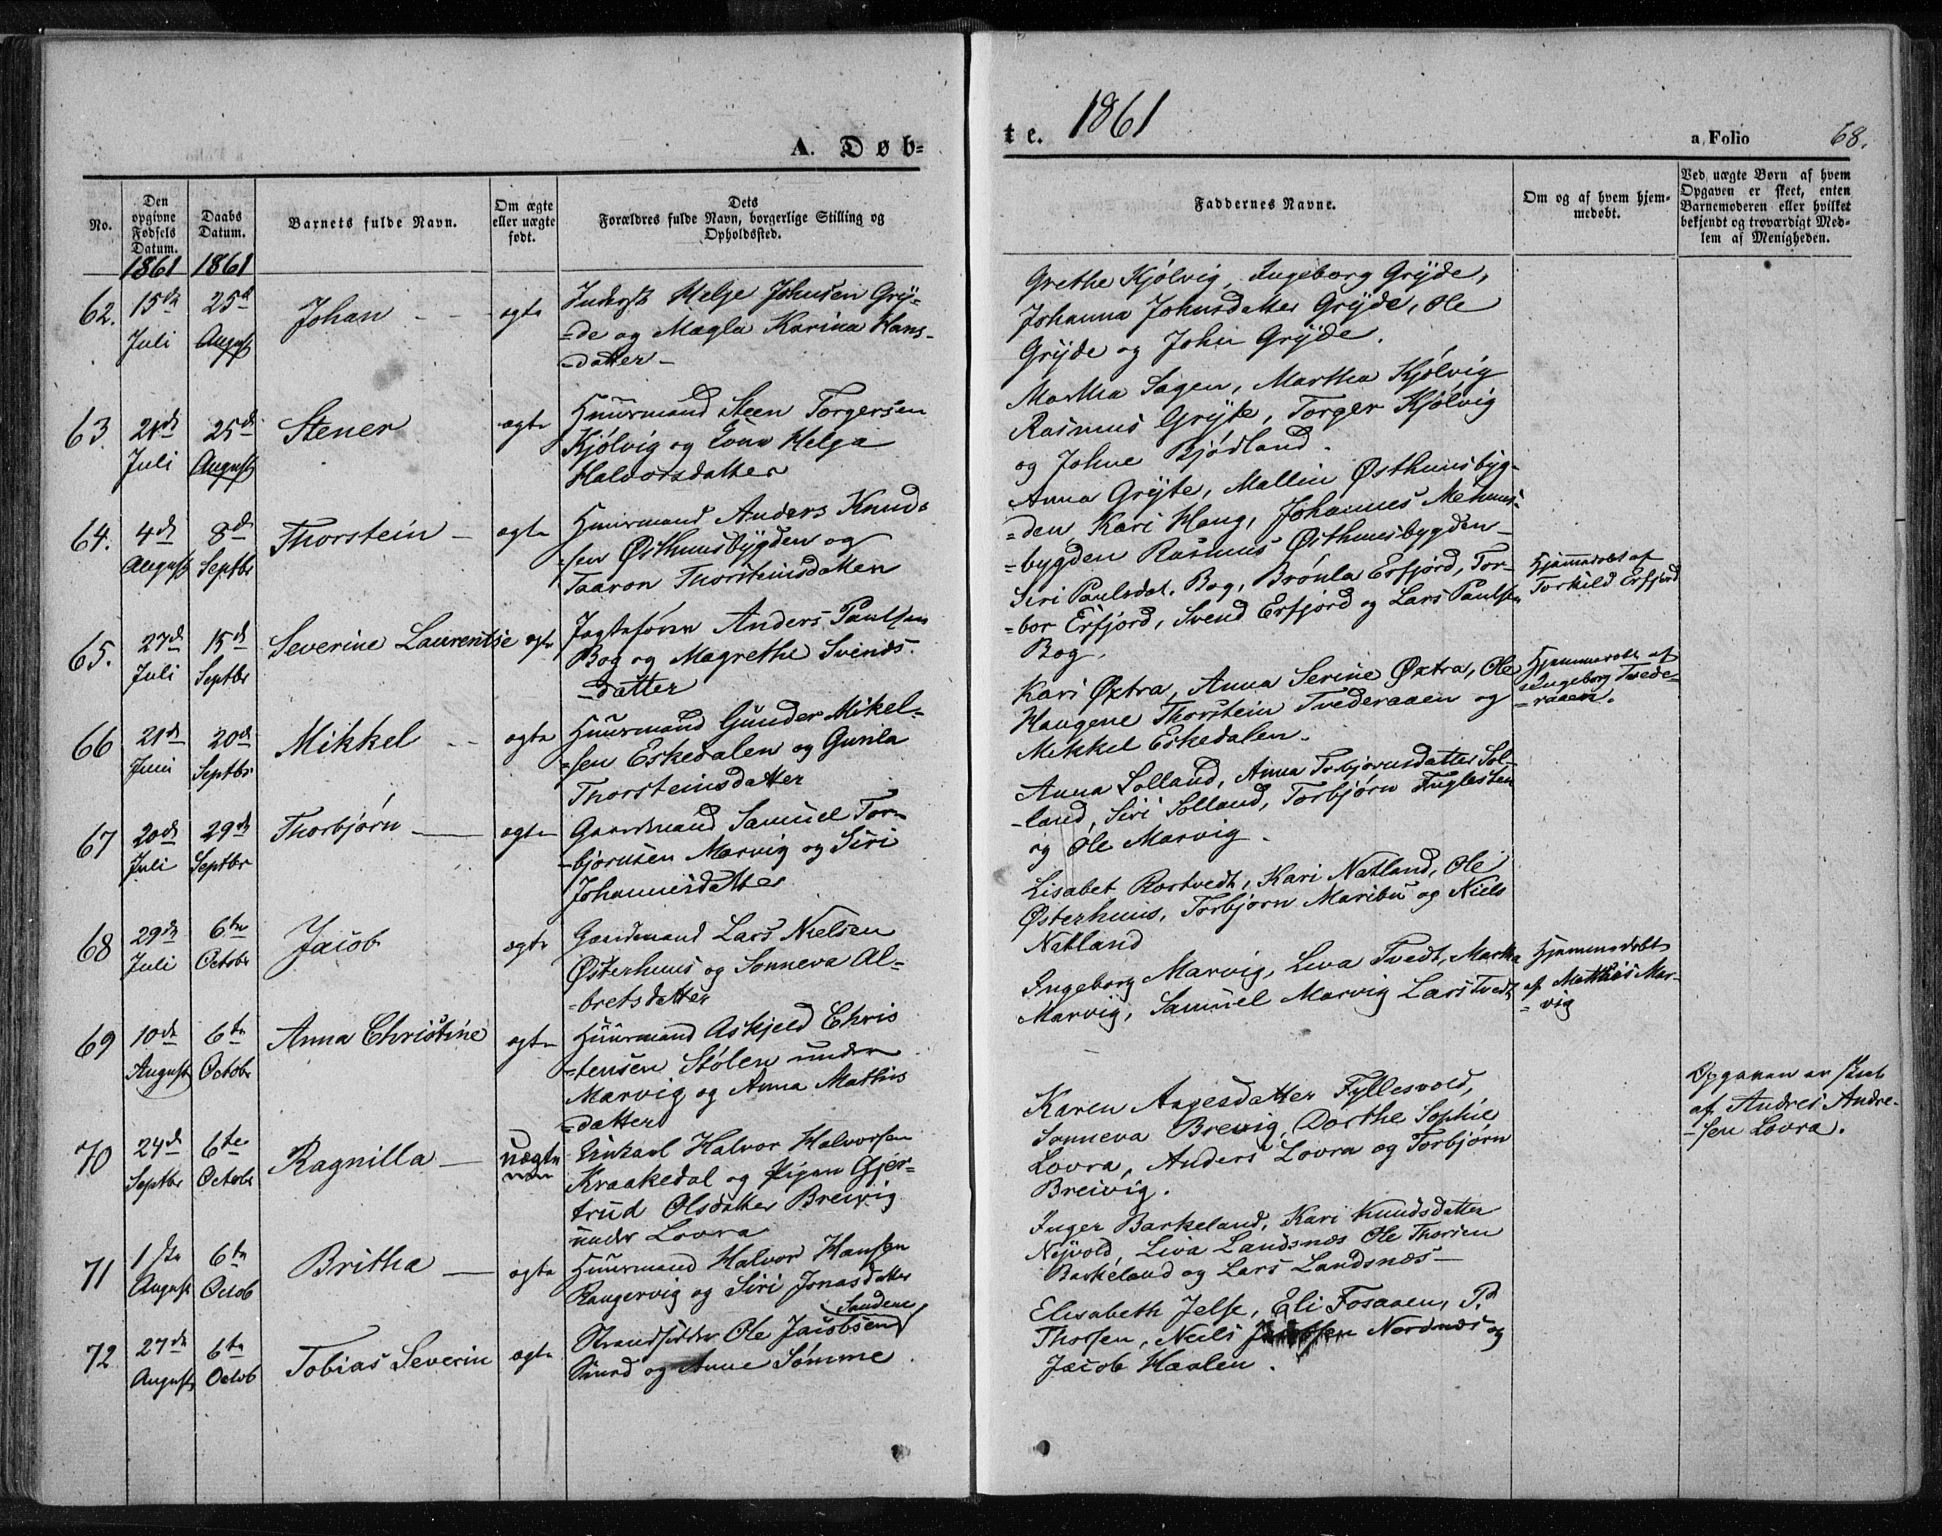 A. Døb-
te. 1861
a Folio 68.
No.
Den opgivne Fødsels Datum.
Daabs Datum.
Barnets fulde Navn.
Om ægte eller uægte født.
Dets Forældres fulde Navn, borgerlige Stilling og Opholdssted.
Faddernes Navne.
Om og af hvem hjem-
medøbt.
Ved uægte Børn af hvem
Opgaven er skeet, enten
Barnemoderen eller hvilket
bekjendt og troværdigt Med-
lem af Menigheden.
1861 1861
62. 15de Juli
25de August
Johan
ægte
Helje Johnsen Grÿ-
-de og Magla Karina Hans-
-datter-
Grethe Kjølvig, Ingeborg Grÿde,
Johanna Johnsdatter Grÿde, Ole
Grÿde og John Grÿde.
63. 21de Juli
25de August
Stener
ægte
Huusmand Steen Torgersen
Kjølvig og Helga
Halvorsdatter
Martha Sagen, Martha Kjølvig
Rasmus Grÿte, Torger Kjølvig
og Johne Bjødland.
64. 4de August
8de Septbr
Thorstein
ægte
Huusmand Anders Knud-
-sen Østhuusbÿgden og
Taaron Thorsteinsdatter
Anna Grÿte, Mallin Østhuusbÿg-
-den, Kari Haug, Johannes
-bygden Rasmus Østhuusbygden
65. 27de Juli
15de Septbr
Severine Laurentse
ægte
Jagtefører Anders Paulsen
Bog og Magrethe Svends-
-datter
Siri Paulsdat. Bog, Brønla Erfjord, Tor-
-bor Erfjord, Svend Erfjord og Lars Paulsen
Bog.
Hjemmedøbt af
Torkild Erfjord
66 21de Juni
20de Septbr
Mikkel
ægte
Huusmand Gunder Mikel-
-sen Eskedalen og Gunla
Thorsteinsdatter
Kari Øxtra, Anna Serine Øxtra, Ole
Haugene Thorstein Tvederaaen og
Mikkel Eskedalen.
Hjemmedøbt af
Ingeborg Tvede-
-raaen.
67 20de Juli
29de Septbr
Thorbjørn
ægte
Gaardmand Samuel Tor-
-bjørnsen Marvig og Siri
Johannesdatter
Anna Solland, Anna Torbjørnsdatter Sol-
-land, Siri Solland, Torbjørn Fuglesten
og Ole Marvig.
68 29de Juli
6te Octobr
Jacob
ægte
Gaardmand Lars Nielsen
Østerhuus og Sonneva Al-
-bretsdatter
Lisabet Rostvedt, Kari Natland, Ole
Østerhuus, Torbjørn Maribu og Niels
Natland
69 10de August
6te Octobr
Anna Christine
ægte
Huusmand Askjeld Chris
-tensen Stølen under
Marvig og Anna Mathis
-datter
Ingeborg Marvig, Liva Tvedt, Martha
Marvig, Samuel Marvig Lars Tvedt
Hjemmedøbt
af Mathias Mar-
-vig
70 24de Septbr
6te Octobr
Ragnilla
uægte
Enkael Halvor Halvorsen
Kraakedal og Pigen Gjer-
trud Olsdatter Breivig
under Lovra
Karen Aagesdatter Fyllesvold,
Sonneva Brevig Dorthe Sophie
Lovra, Anders Lovra og Torbjørn
Breivig.
Opgaven er skeet
af Andres Andre-
-sen Lovra.
71 1ste August
6te Octob
Britha
ægte
Huusmand Halvor Hansen
Raugervig og Siri Jonasdatter
Inger Barkeland, Kari Knudsdatter
Nÿvold, Liva Landsnæs Ole Thorsen
Barkeland og Lars Landsnæs-
72 27de August
6te Octob
Tobias Severin
ægte
Strandsidder Ole Jacobsen Sandene
Sand og Anne Sømme.
Elisabeth Jelse, Eli Fosaaen, P.
Thorsen, Neils Nordnæs og
Jacob Haalen.